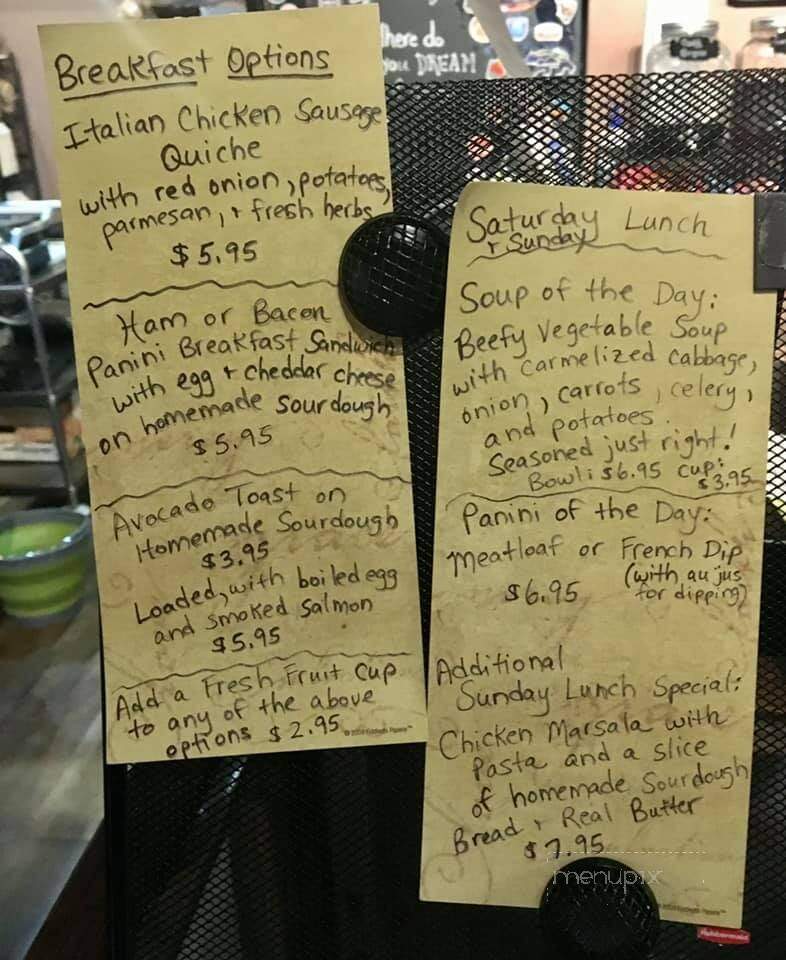 there do
you DREAM
Breakfast Options
Italian Chicken Sausage
Quiche
with red onion, potatoes,
parmesan, + fresh herbs
$5.95
Ham or Bacon
Panini Breakfast Sandwich
with egg + cheddar cheese
on homemade sourdough
$5.95
Avocado Toast on
Homemade Sourdough
$3.95
Loaded, with boiled egg
and smoked salmon
$5.95
Add a Fresh Fruit Cup
to any of the above
options $2.95
Saturday Lunch
+ Sunday
Soup of the Day:
Beefy Vegetable Soup
with carmelized cabbage,
onion, carrots, celery,
and potatoes.
Seasoned just right!
Bowl: $6.95 cup:
$3.95
Panini of the Day:
Meatloaf or French Dip
$6.95 (with au jus
for dipping)
Additional
Sunday Lunch Special:
Chicken Marsala with
Pasta and a slice
of homemade Sourdough
Bread + Real Butter
$7.95
menupix
Rubbermaid